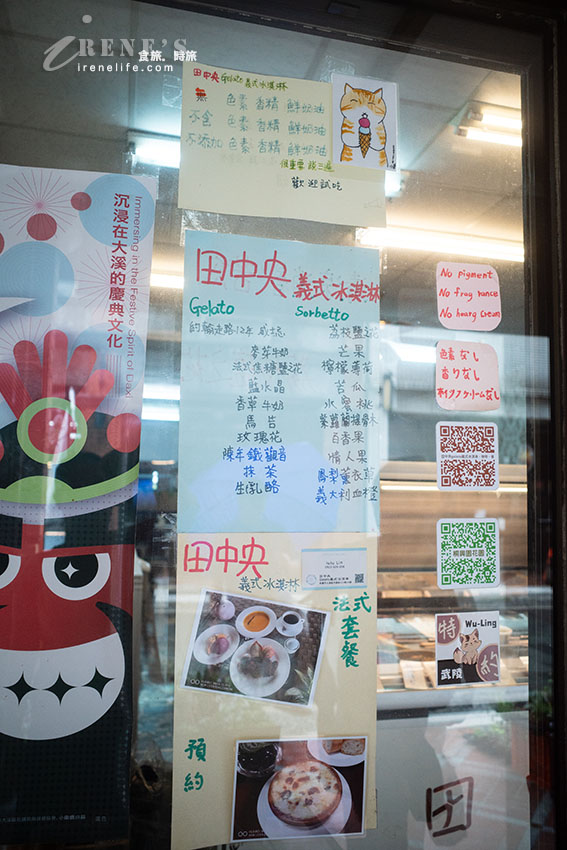 iRENE'S
食旅。時旅
irenelife.com
田中央 Gelato 義式冰淇淋
無 色素 香精 鮮奶油
不含 色素 香精 鮮奶油
不添加 色素 香精 鮮奶油
很重要 說三遍
歡迎試吃
沉浸在大溪的慶典文化
Immersing in the Festive Spirit of Daxi
田中央 義式冰淇淋
Gelato
約翰走路12年 威士忌
麥芽牛奶
法式焦糖鹽花
藍水晶
香草牛奶
馬告
玫瑰花
陳年鐵觀音
抹茶
生乳酪
Sorbetto
荔枝鹽之花
芒果
檸檬薄荷
苦瓜
水蜜桃
紫蘿蘭接骨木
百香果
情人果
鳳梨薰衣草
義大利血橙
No pigment
No fragrance
No heavy cream
色素なし
香りなし
生クリームなし
田中央
義式冰淇淋
法式套餐
預約
桐興園花園
Wu-Ling
特約
武陵
田